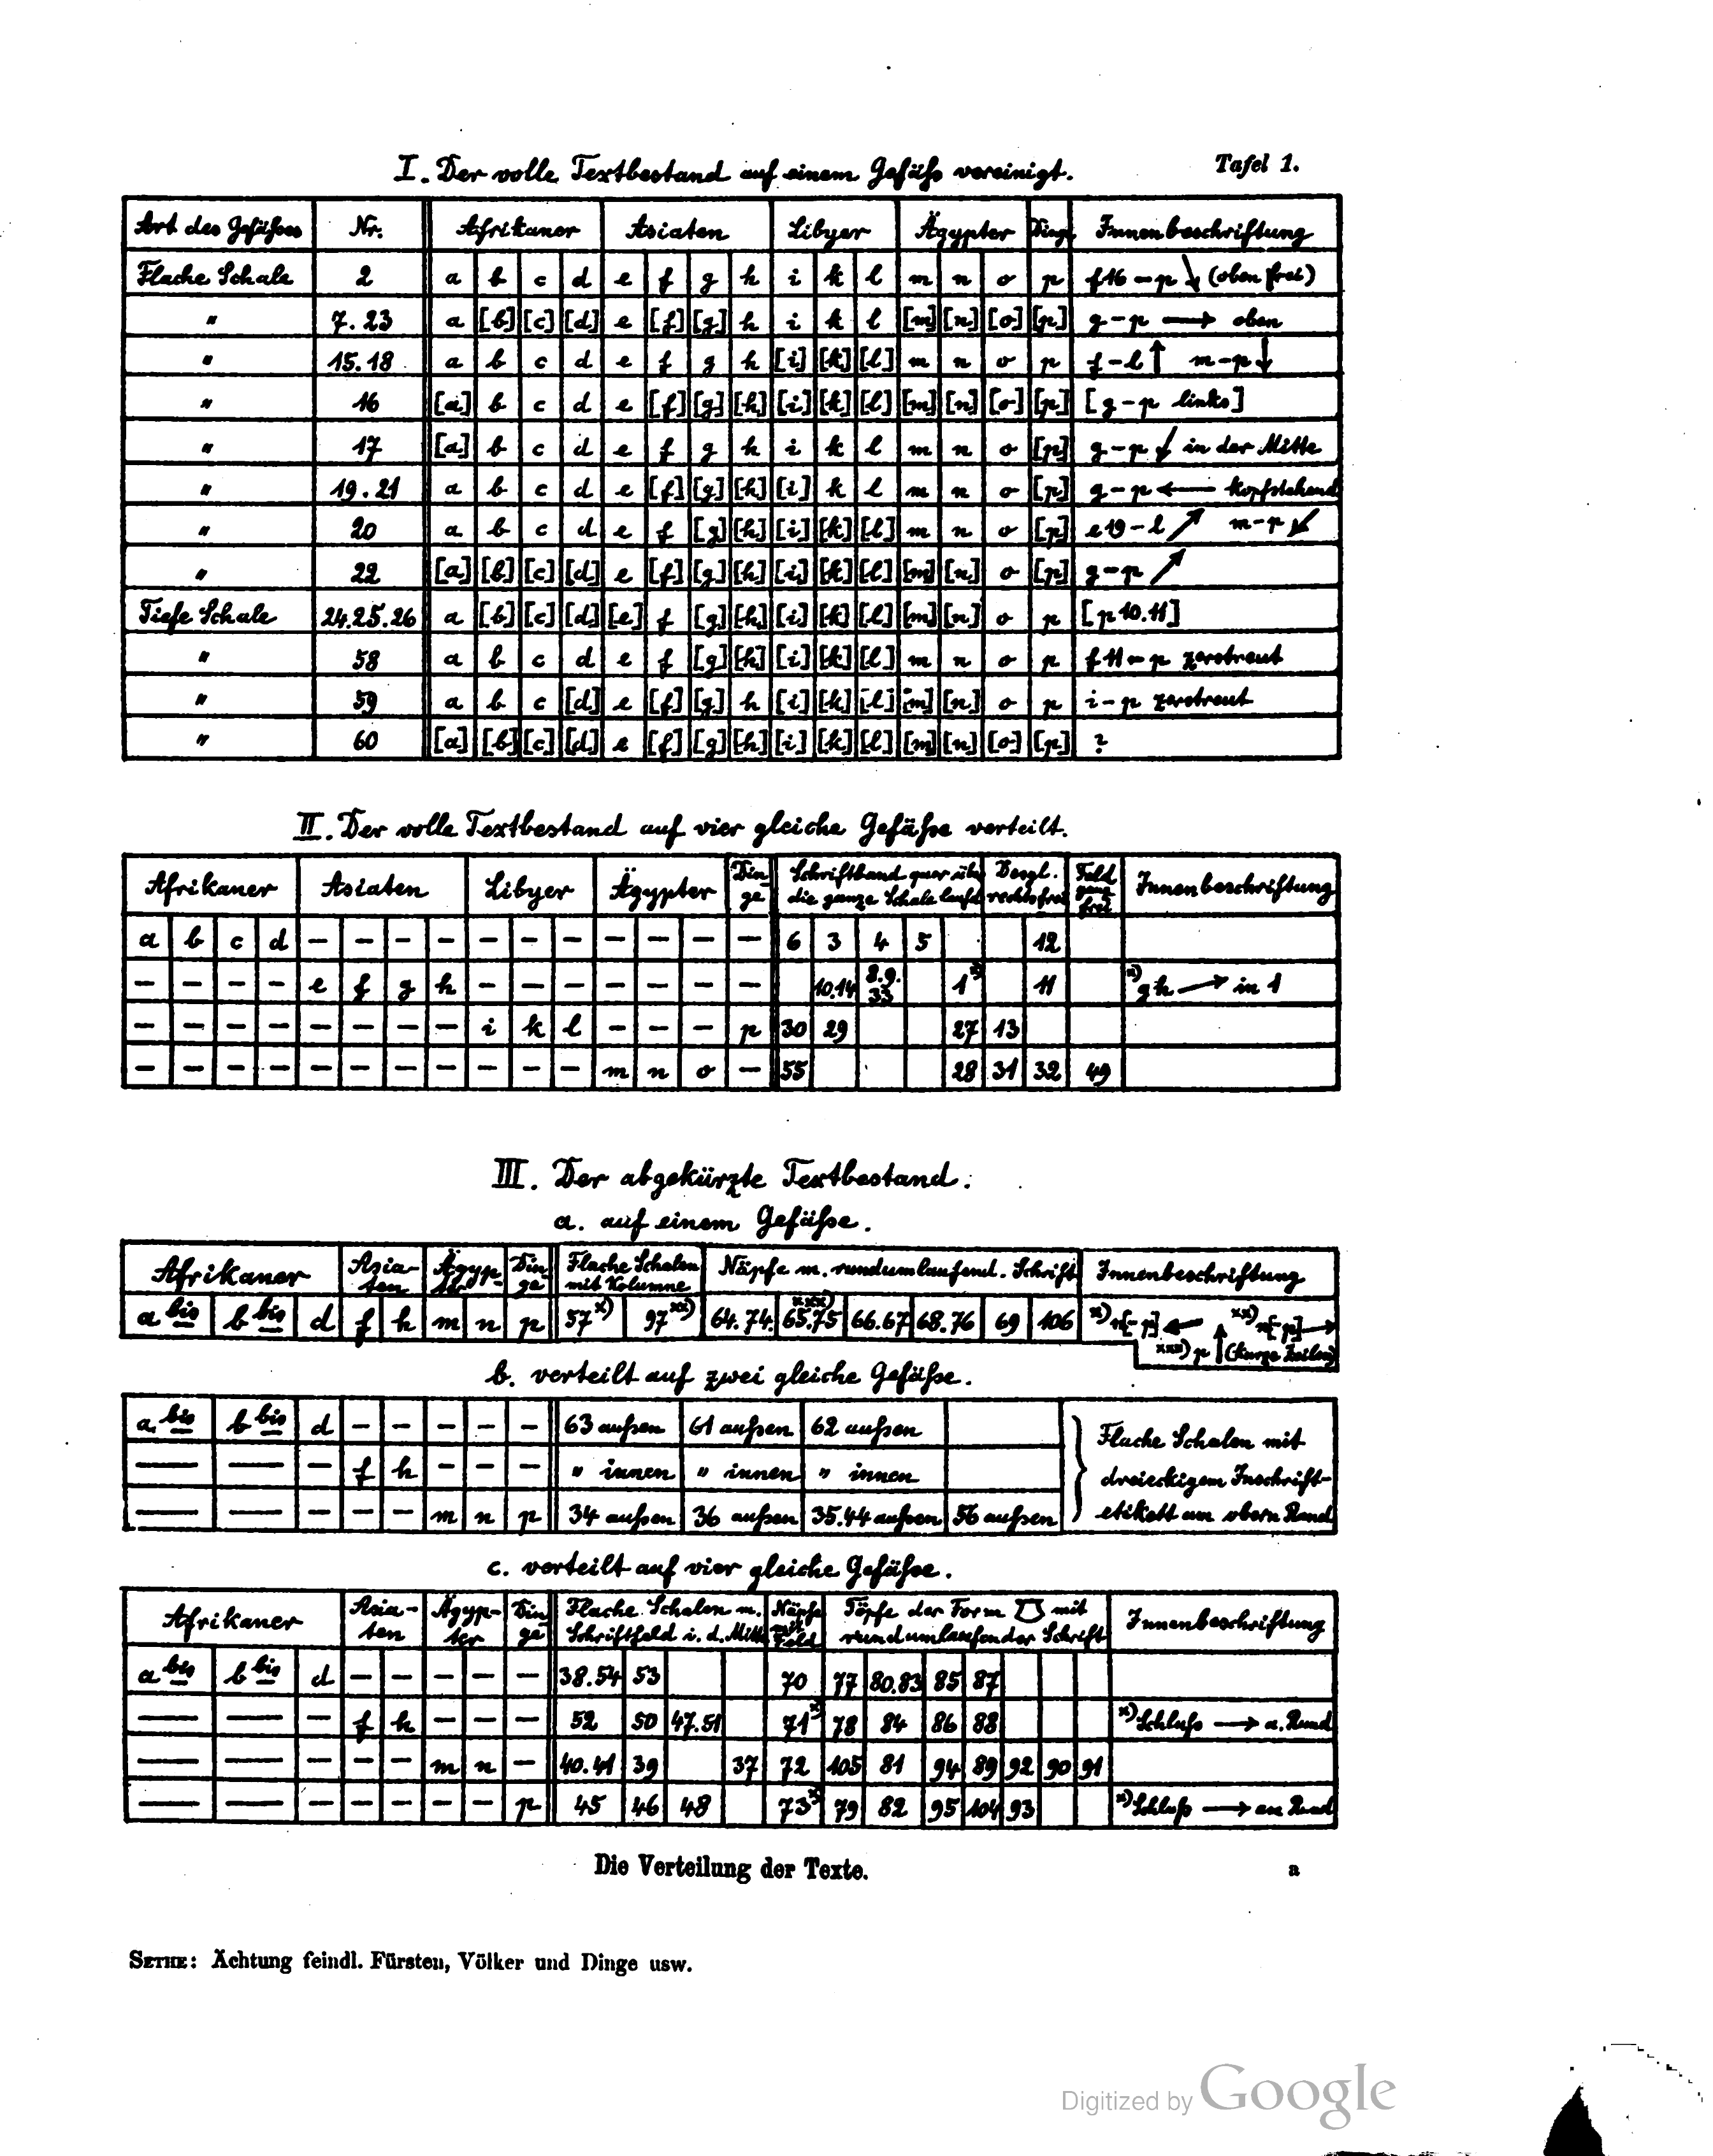 Tafel 1.
I. Der volle Textbestand auf einem Gefäße vereinigt.
Art des Gefäßes Nr. Afrikaner Asiaten Libyer Ägypter Dinge Innenbeschriftung
Flache Schale 2 a b c d e f g h i k l m n o p f16 – p ↘ (oben frei)
" 7. 23 a [b] [c] [d] e [f] [g] h i k l [m] [n] [o] [p] g – p → oben
" 15. 18 a b c d e f g h [i] [k] [l] m n o p f – l ↑ m – p ↓
" 16 [a] b c d e [f] [g] [h] [i] [k] [l] [m] [n] [o] [p] [g – p links]
" 17 [a] b c d e f g h i k l m n o [p] g – p ↙ in der Mitte
" 19. 21 a b c d e [f] [g] [h] [i] k l m n o [p] g – p ← Kopfstehend
" 20 a b c d e f [g] [h] [i] [k] [l] m n o [p] e19 – l ↗ m – p ↙
" 22 [a] [b] [c] [d] e [f] [g] [h] [i] [k] [l] [m] [n] o [p] g – p ↗
Tiefe Schale 24.25.26 a [b] [c] [d] [e] f [g] [h] [i] [k] [l] [m] [n] o p [p 10.11]
" 58 a b c d e f [g] [h] [i] [k] [l] m n o p f11 – p zerstreut
" 59 a b c [d] e [f] [g] h [i] [k] [l] [m] [n] o p i – p zerstreut
" 60 [a] [b] [c] [d] e [f] [g] [h] [i] [k] [l] [m] [n] [o] [p] ?
II. Der volle Textbestand auf vier gleiche Gefäße verteilt.
Afrikaner Asiaten Libyer Ägypter Din- Schriftband quer üb. Desgl. Feld Innenbeschriftung
ge die ganze Schale laufd. rechts frei ganz
frei
a b c d – – – – – – – – – – – 6 3 4 5 12
– – – – e f g h – – – – – – – 10.14 8.9.33 1 x) 11 x) gh → in 1
– – – – – – – – i k l – – – p 30 29 27 13
– – – – – – – – – – – m n o – 55 28 31 32 49
III. Der abgekürzte Textbestand.
a. auf einem Gefäße.
Afrikaner Asia- Ägyp- Din- Flache Schalen Näpfe m. rundumlaufend. Schrift Innenbeschriftung
ten ter ge mit Kolumne
a bis b bis d f h m n p 57 x) 97 xx) 64.74. 65.75 xxx) 66.67 68.76 69 106 x) n[–p] ← xx) n[–p] →
xxx) p ↑ (kurze Zeilen)
b. verteilt auf zwei gleiche Gefäße.
a bis b bis d – – – – – 63 außen 61 außen 62 außen
– – – f h – – – " innen " innen " innen
– – – – – m n p 34 außen 36 außen 35.44 außen 56 außen
Flache Schalen mit
dreieckigem Inschrift-
etikett am obern Rand
c. verteilt auf vier gleiche Gefäße.
Afrikaner Asia- Ägyp- Din- Flache Schalen m. Näpfe Töpfe der Form mit Innenbeschriftung
ten ter ge Schriftfeld i. d. Mitte mit Feld rundumlaufender Schrift
a bis b bis d – – – – – 38.54 53 70 77 80.83 85 87
– – – f h – – – 52 50 47.51 71 x) 78 84 86 88 x) Schluß → a. Rand
– – – – – m n – 40.41 39 37 72 105 81 94 89 92 90 91
– – – – – – – p 45 46 48 73 x) 79 82 95 104 93 x) Schluß → am Rand
Die Verteilung der Texte. a
SETHE: Ächtung feindl. Fürsten, Völker und Dinge usw.
Digitized by Google